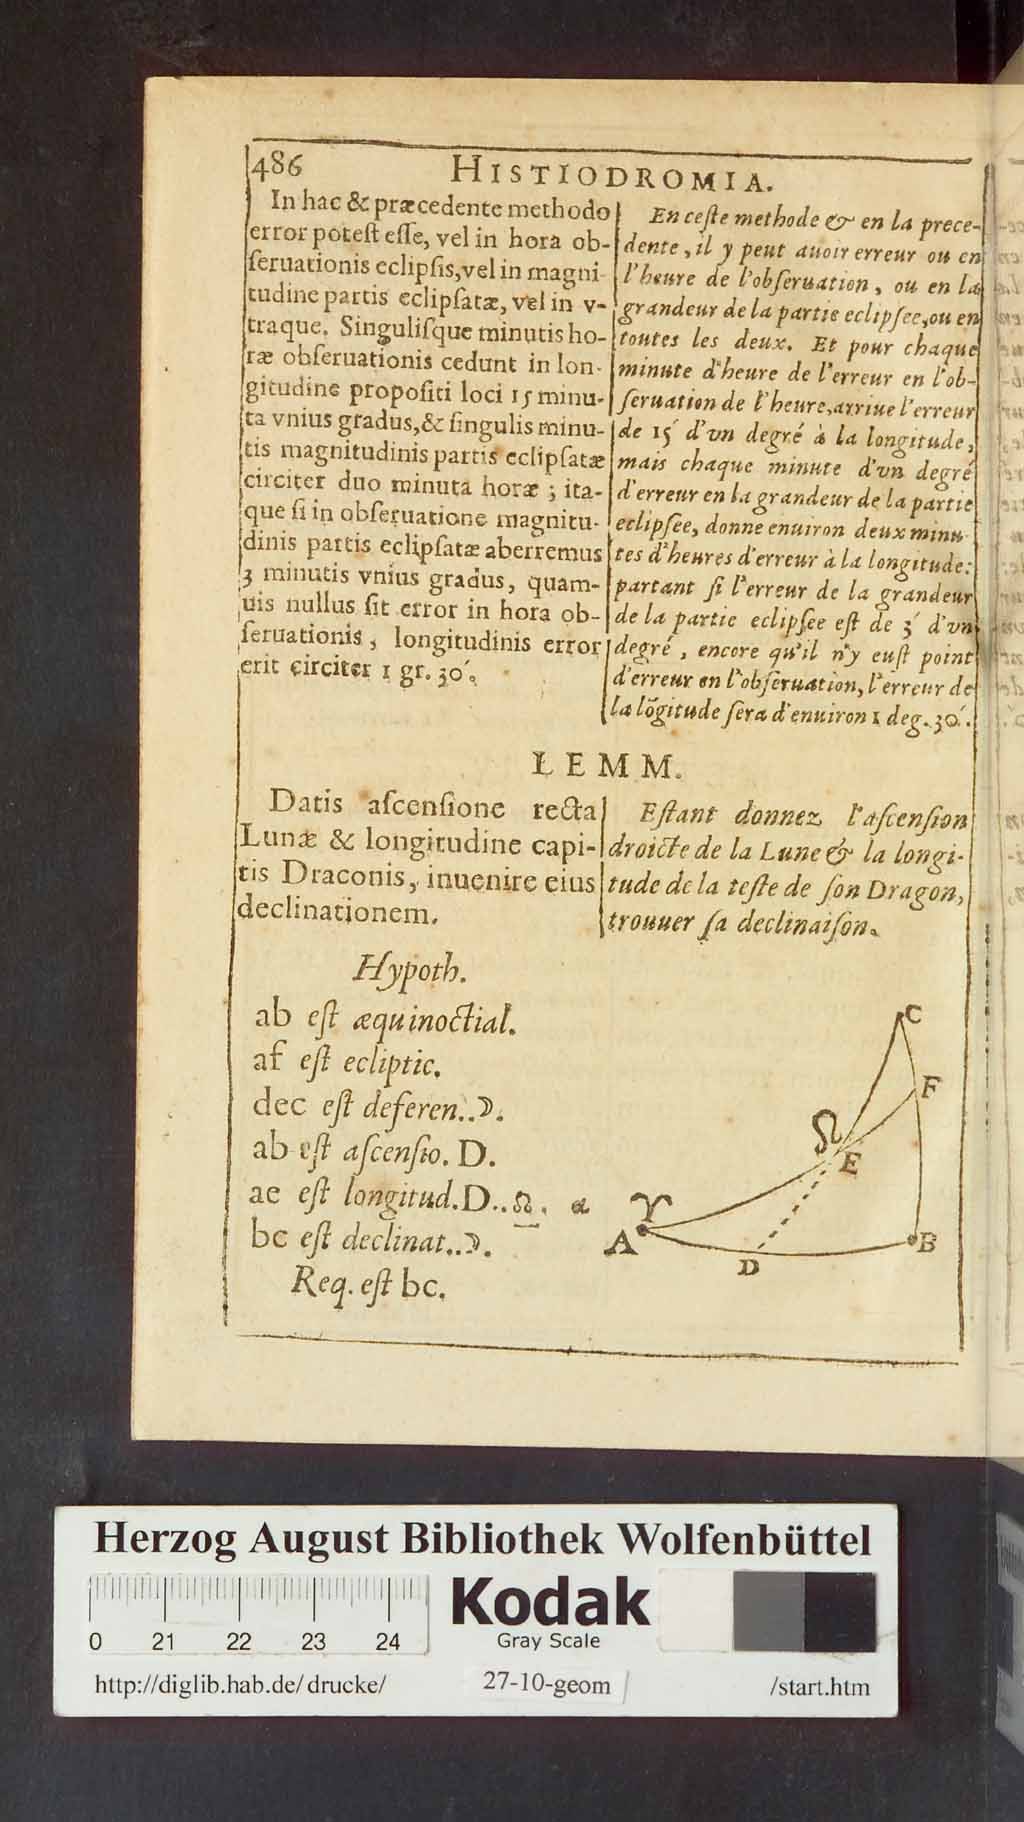 486 HISTIODROMIA.
In hac & præcedente methodo
error poteſt eſſe, vel in hora ob-
ſeruationis eclipſis, vel in magni-
tudine partis eclipſatæ, vel in v-
traque. Singuliſque minutis ho-
ræ obſeruationis cedunt in lon-
gitudine propoſiti loci 15 minu-
ta vnius gradus, & ſingulis minu-
tis magnitudinis partis eclipſatæ
circiter duo minuta horæ ; ita-
que ſi in obſeruatione magnitu-
dinis partis eclipſatæ aberremus
3 minutis vnius gradus, quam-
uis nullus ſit error in hora ob-
ſeruationis, longitudinis error
erit circiter 1 gr. 30′.
En ceſte methode & en la prece-
dente, il y peut auoir erreur ou en
l'heure de l'obſeruation, ou en la
grandeur de la partie eclipſee, ou en
toutes les deux. Et pour chaque
minute d'heure de l'erreur en l'ob-
ſeruation de l'heure, arriue l'erreur
de 15′ d'vn degré à la longitude,
mais chaque minute d'vn degré
d'erreur en la grandeur de la partie
eclipſee, donne enuiron deux minu-
tes d'heures d'erreur à la longitude:
partant ſi l'erreur de la grandeur
de la partie eclipſee eſt de 3′ d'vn
degré, encore qu'il n'y euſt point
d'erreur en l'obſeruation, l'erreur de
la lõgitude ſera d'enuiron 1 deg. 30′.
LEMM.
Datis aſcenſione recta
Lunæ & longitudine capi-
tis Draconis, inuenire eius
declinationem.
Eſtant donnez l'aſcenſion
droicte de la Lune & la longi-
tude de la teſte de ſon Dragon,
trouuer ſa declinaiſon.
Hypoth.
ab eſt æquinoctial.
af eſt ecliptic.
dec eſt deferen..☽.
ab eſt aſcenſio. D.
ae eſt longitud. D..☊. a
bc eſt declinat..☽.
Req. eſt bc.
C
F
☊
E
♈
A
B
D
Herzog August Bibliothek Wolfenbüttel
0 21 22 23 24
Kodak
Gray Scale
http://diglib.hab.de/drucke/ 27-10-geom /start.htm